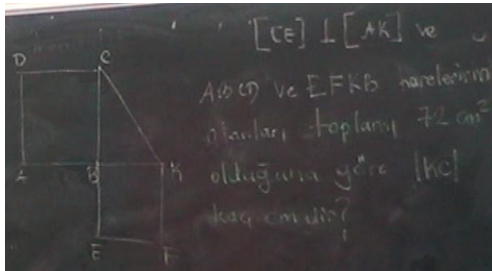 [CE] ⊥ [AK] ve
D C
ABCD ve EFKB karelerinin
alanları toplamı 72 cm²
A B K olduğuna göre |KC|
kaç cm dir?
E F